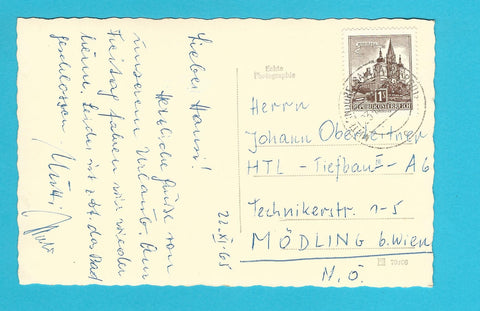 22. XI. 65
Lieber Hansi!
Herzliche Grüße von
unserem Urlaub. Am
Freitag fahren wir wieder
heim. Leider ist jetzt das Bad
geschlossen.
Mutti,
Echte
Photographie
1S
REPUBLIK ÖSTERREICH
Herrn
Johann Oberleitner
HTL - Tiefbau II - A6
Technikerstr. 1-5
MÖDLING b. Wien
N.Ö.